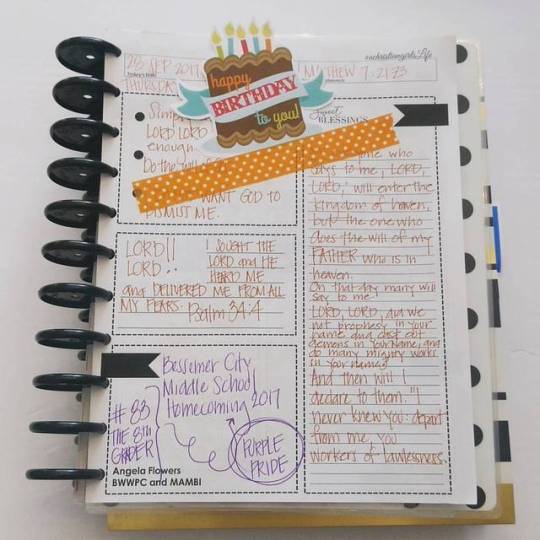 28 SEP 2017
MATTHEW 7:21-23
#achristiangirlsLife
THURSDAY
happy
BIRTHDAY
to you!
Sweet
BLESSINGS
Simply
LORD LORD
enough.
Do the will of
WANT GOD TO
DISMISS ME.
LORD!!
LORD..
I SOUGHT THE
LORD and HE
HEARD ME
and DELIVERED ME FROM ALL
MY FEARS. Psalm 34:4
Bessemer City
Middle School
Homecoming 2017
#83
THE 8TH
GRADER
PURPLE
PRIDE
Angela Flowers
BWWPC and MAMBI
one who
says to me, LORD,
LORD,' will enter the
kingdom of heaven,
but the one who
does the will of my
FATHER who is in
heaven.
On that day many will
say to me
LORD, LORD, did we
not prophesy in your
name and cast out
demons in your name, and
do many mighty works
in your name?
And then will I
declare to them. "I
never knew you: depart
from me, you
workers of lawlessness.